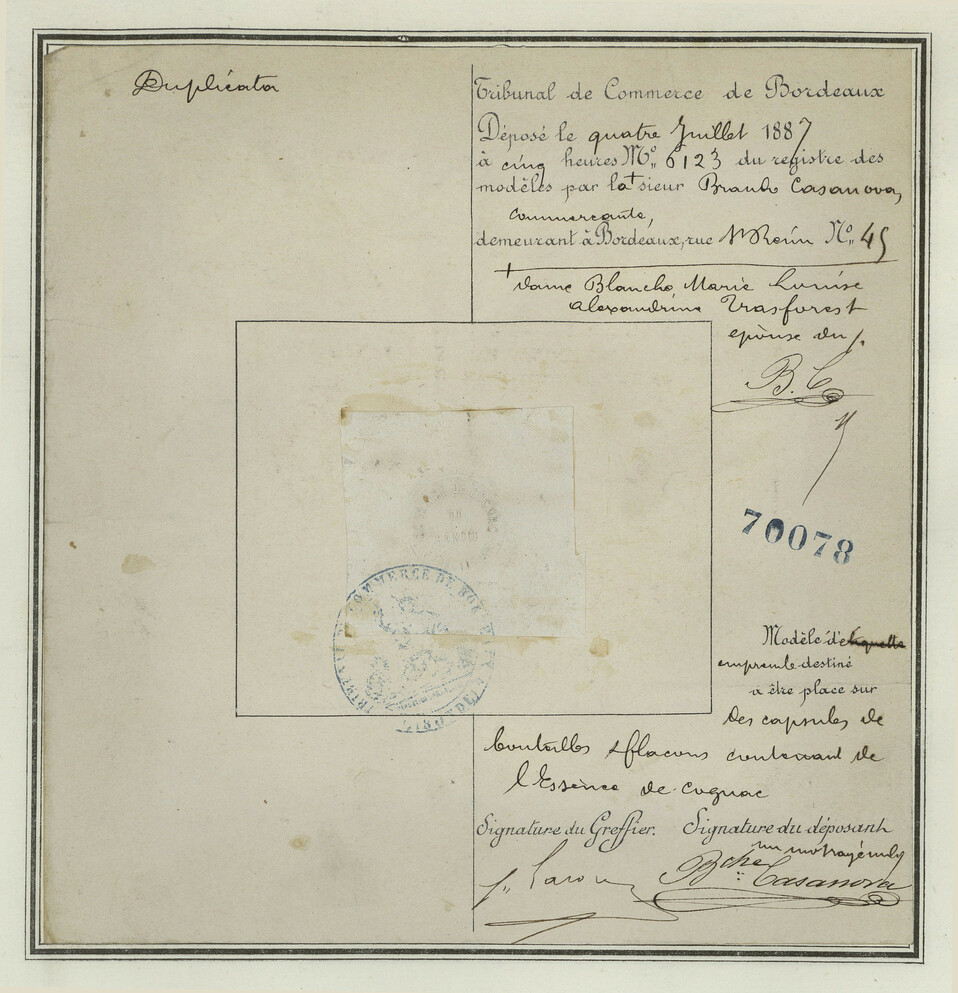 Duplicata
Tribunal de Commerce de Bordeaux
Déposé le quatre Juillet 1887
à cinq heures No. 6123 du registre des
modèles par la + sieur Casanova,
Commerçante,
demeurant à Bordeaux, rue St No. 45
+ dame Blanche Marie Louise
Alexandrine Trasforest
épouse du
B. C
70078
Modèle d'étiquette
empreinte destiné
à être place sur
des capsules de
bouteilles & flacons contenant de
l'Essence de Cognac
Signature du Greffier. Signature du déposant
un mot rayé nul
Bche Casanova
TRIBUNAL DE COMMERCE DE BORDEAUX